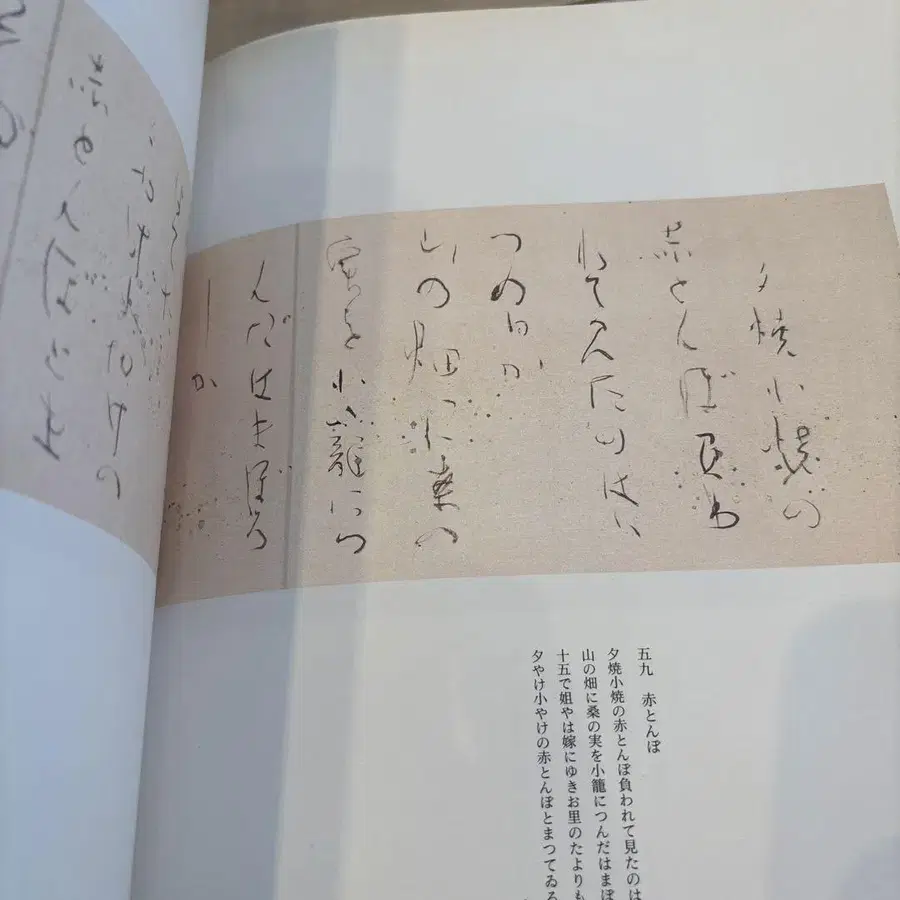 夕焼小焼の
赤とんぼ負わ
れて見たのはい
つの日か
山の畑に桑の
実を小籠につ
んだはまぼろ
しか
五九 赤とんぼ
夕焼小焼の赤とんぼ負われて見たのは
山の畑に桑の実を小籠につんだはまぼ
十五で姐やは嫁にゆきお里のたよりも
夕やけ小やけの赤とんぼとまつてゐる
赤とんぼとま